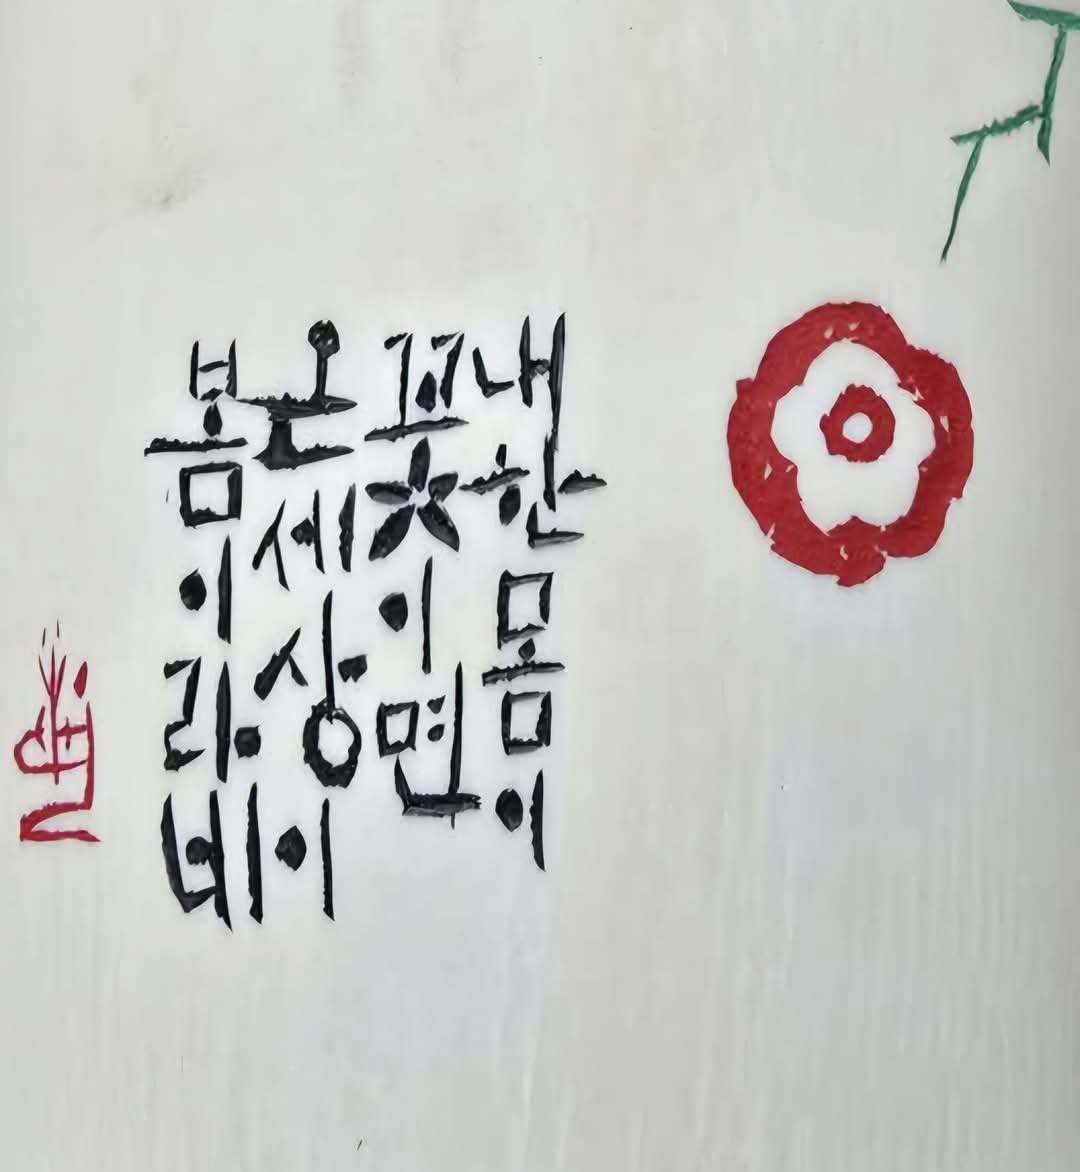 내한몸이
꽃이면
온세상이
봄이라네